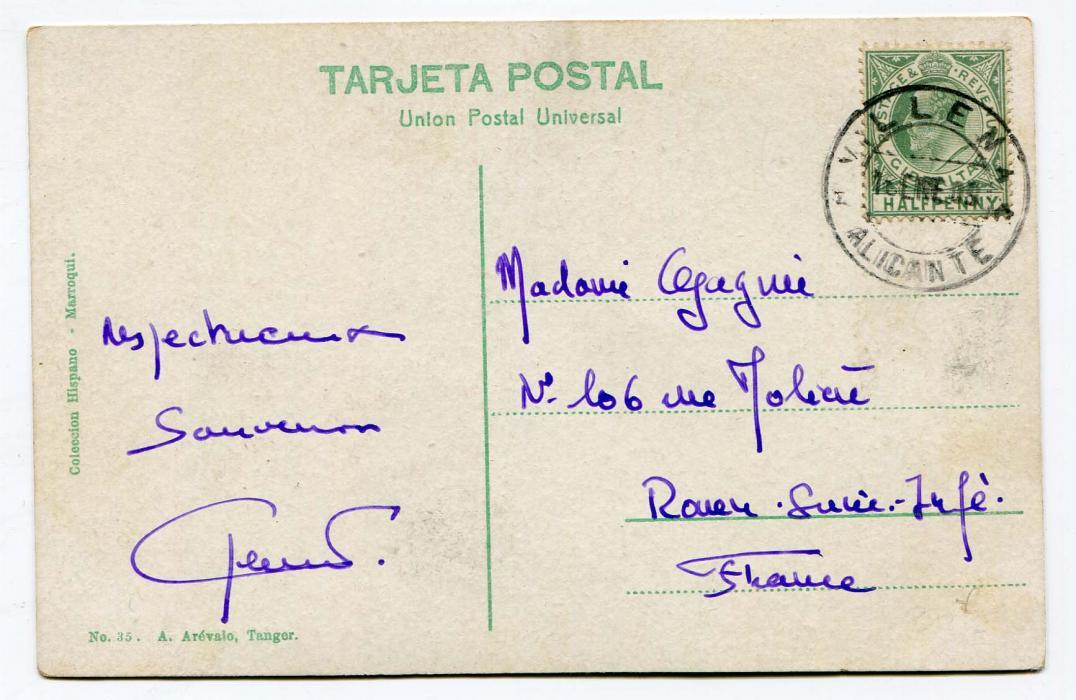 TARJETA POSTAL
Union Postal Universal
POSTAGE & REVENUE
GIBRALTAR
HALFPENNY
VILLENA
ALICANTE
Coleccion Hispano - Marroqui.
respectueux
Souvenir
Madame
No. 106 rue Molière
Rouen. Seine-Infè.
France
No. 35. A. Arévalo, Tanger.